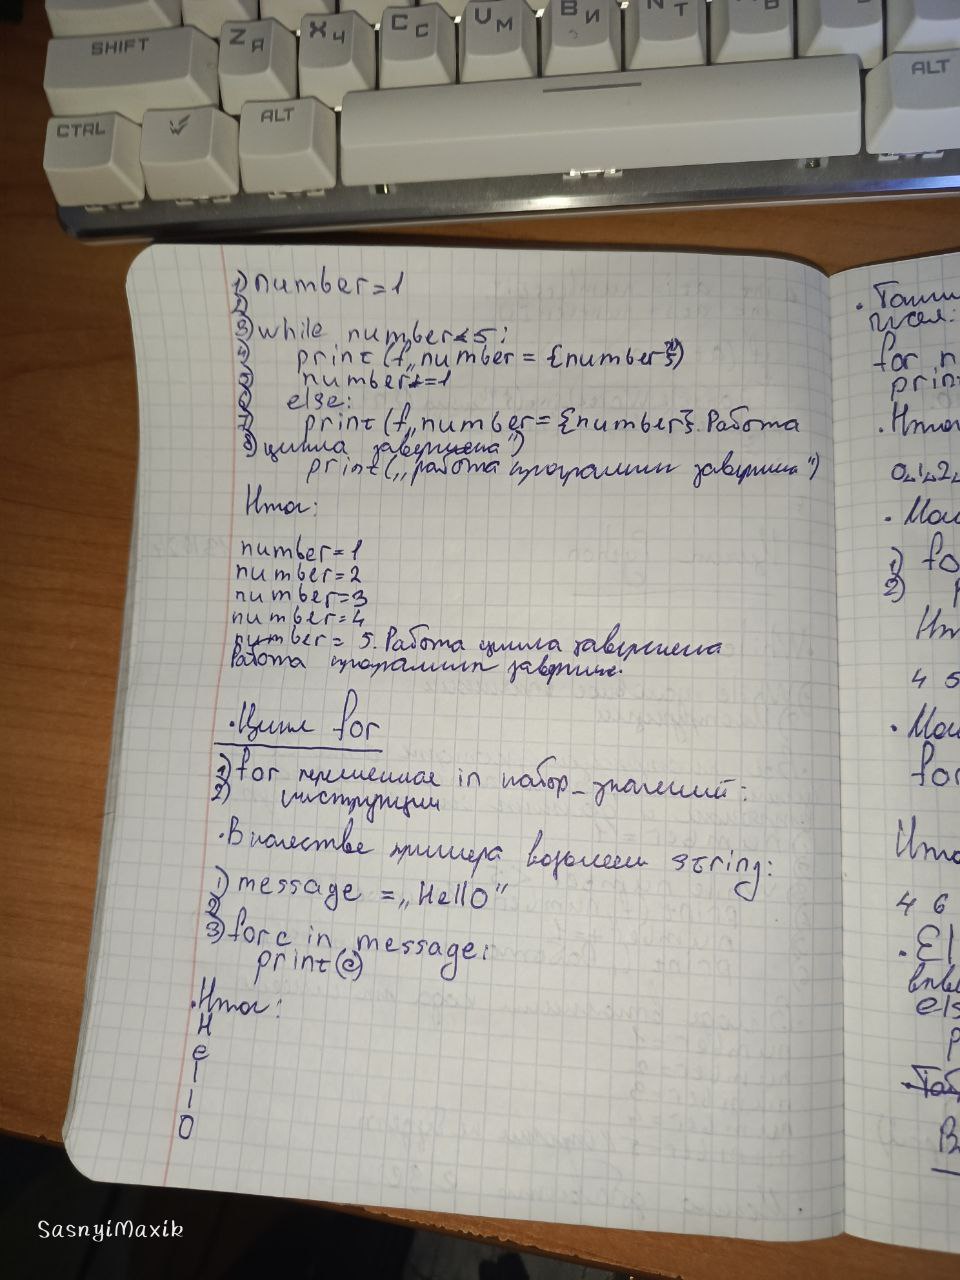 SHIFT
Z Я
X Ч
C С
V М
B И
N Т
CTRL
ALT
ALT
1) number = 1
2)
3) while number < 5:
4) print (f„number = {number}")
5) number += 1
6) else:
7) print (f„number = {number}. Работа
8) цикла завершена")
print („работа программы завершена")
Итог:
number = 1
number = 2
number = 3
number = 4
number = 5. Работа цикла завершена
Работа программы
. Цикл for
1) for переменная in набор_значений:
2) инструкции
. В качестве примера возьмем string:
1) message = „Hello"
2)
3) for c in message:
print(c)
. Итог:
H
e
l
l
o
for n
print
. Итог
. El
els
SasnyiMaxik